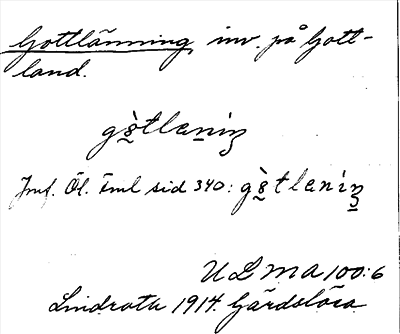 Gottlänning, inv. på Gott-
land.
gò̱tlaṉiŋ
Jmf. Öl. Fml sid 340: gò̱tlanìŋ̱
ULMA 100:6
Lindroth 1914. Gärdslösa